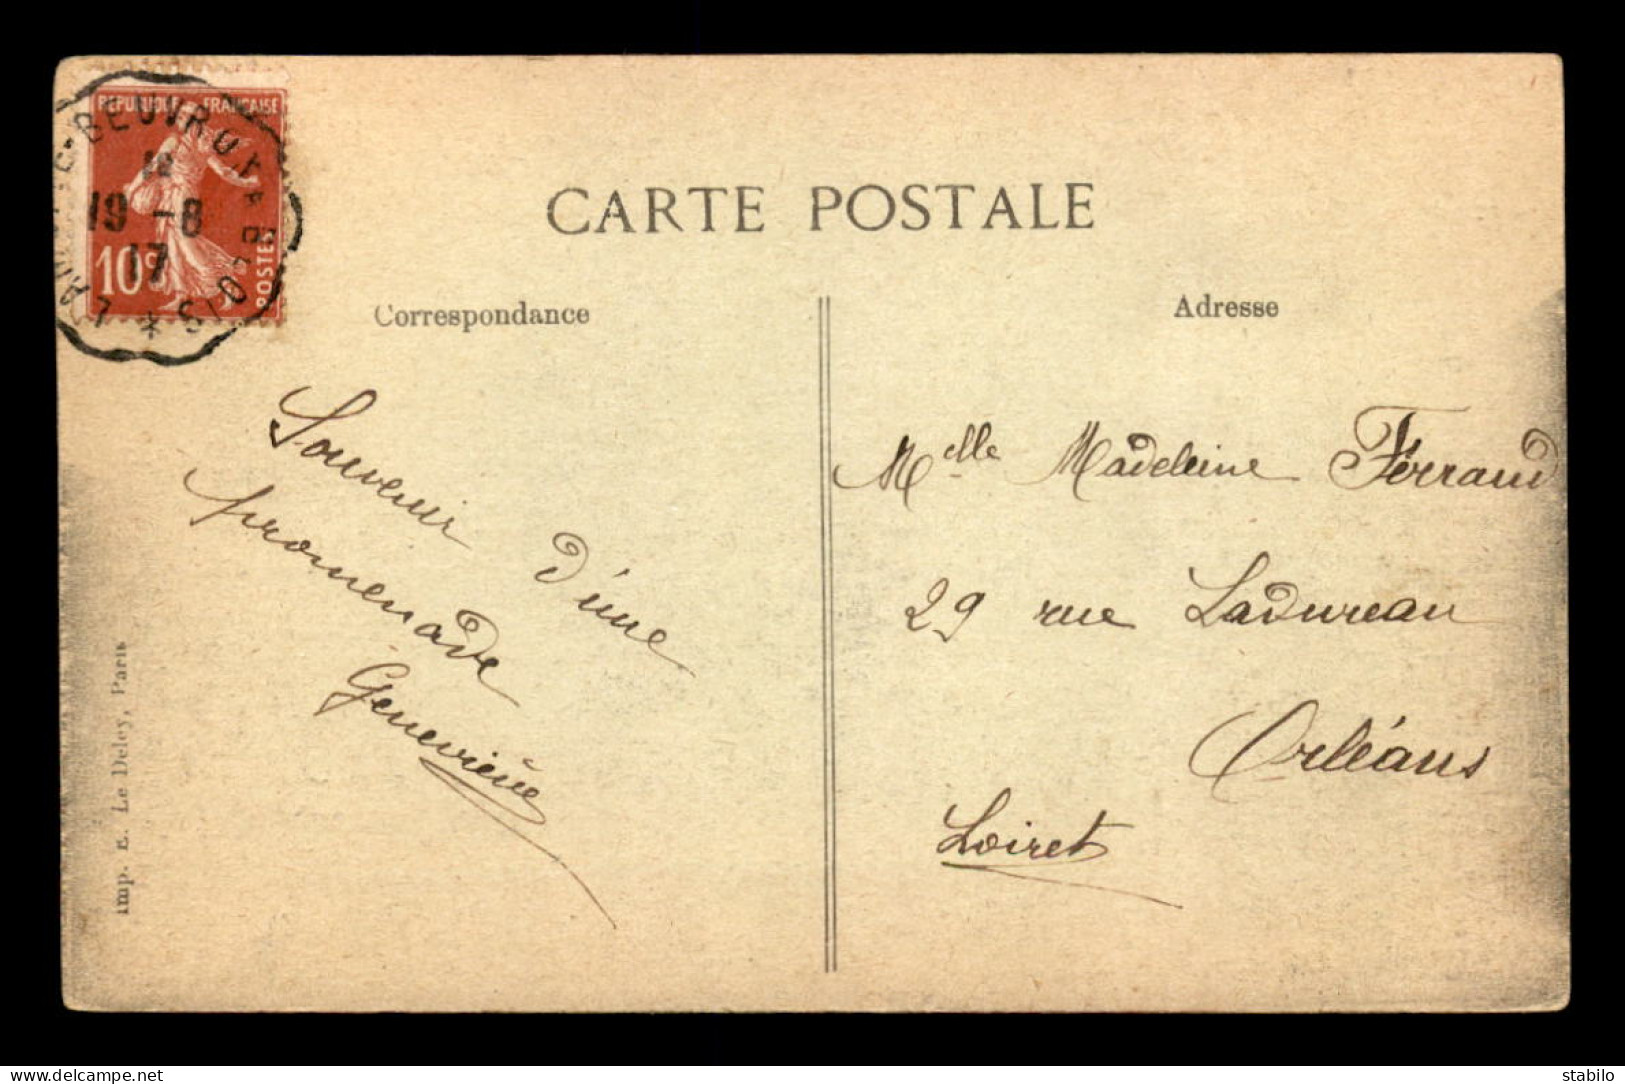 RÉPUBLIQUE FRANÇAISE
10c
POSTES
BEUVRON A BLOIS *
19 -8
17
CARTE POSTALE
Correspondance
Adresse
Souvenir d'une
promenade
Geneviève
Melle Madeleine Ferrand
29 rue Ladureau
Orléans
Loiret
Imp. E. Le Deley, Paris
delcampe.net
stabilo